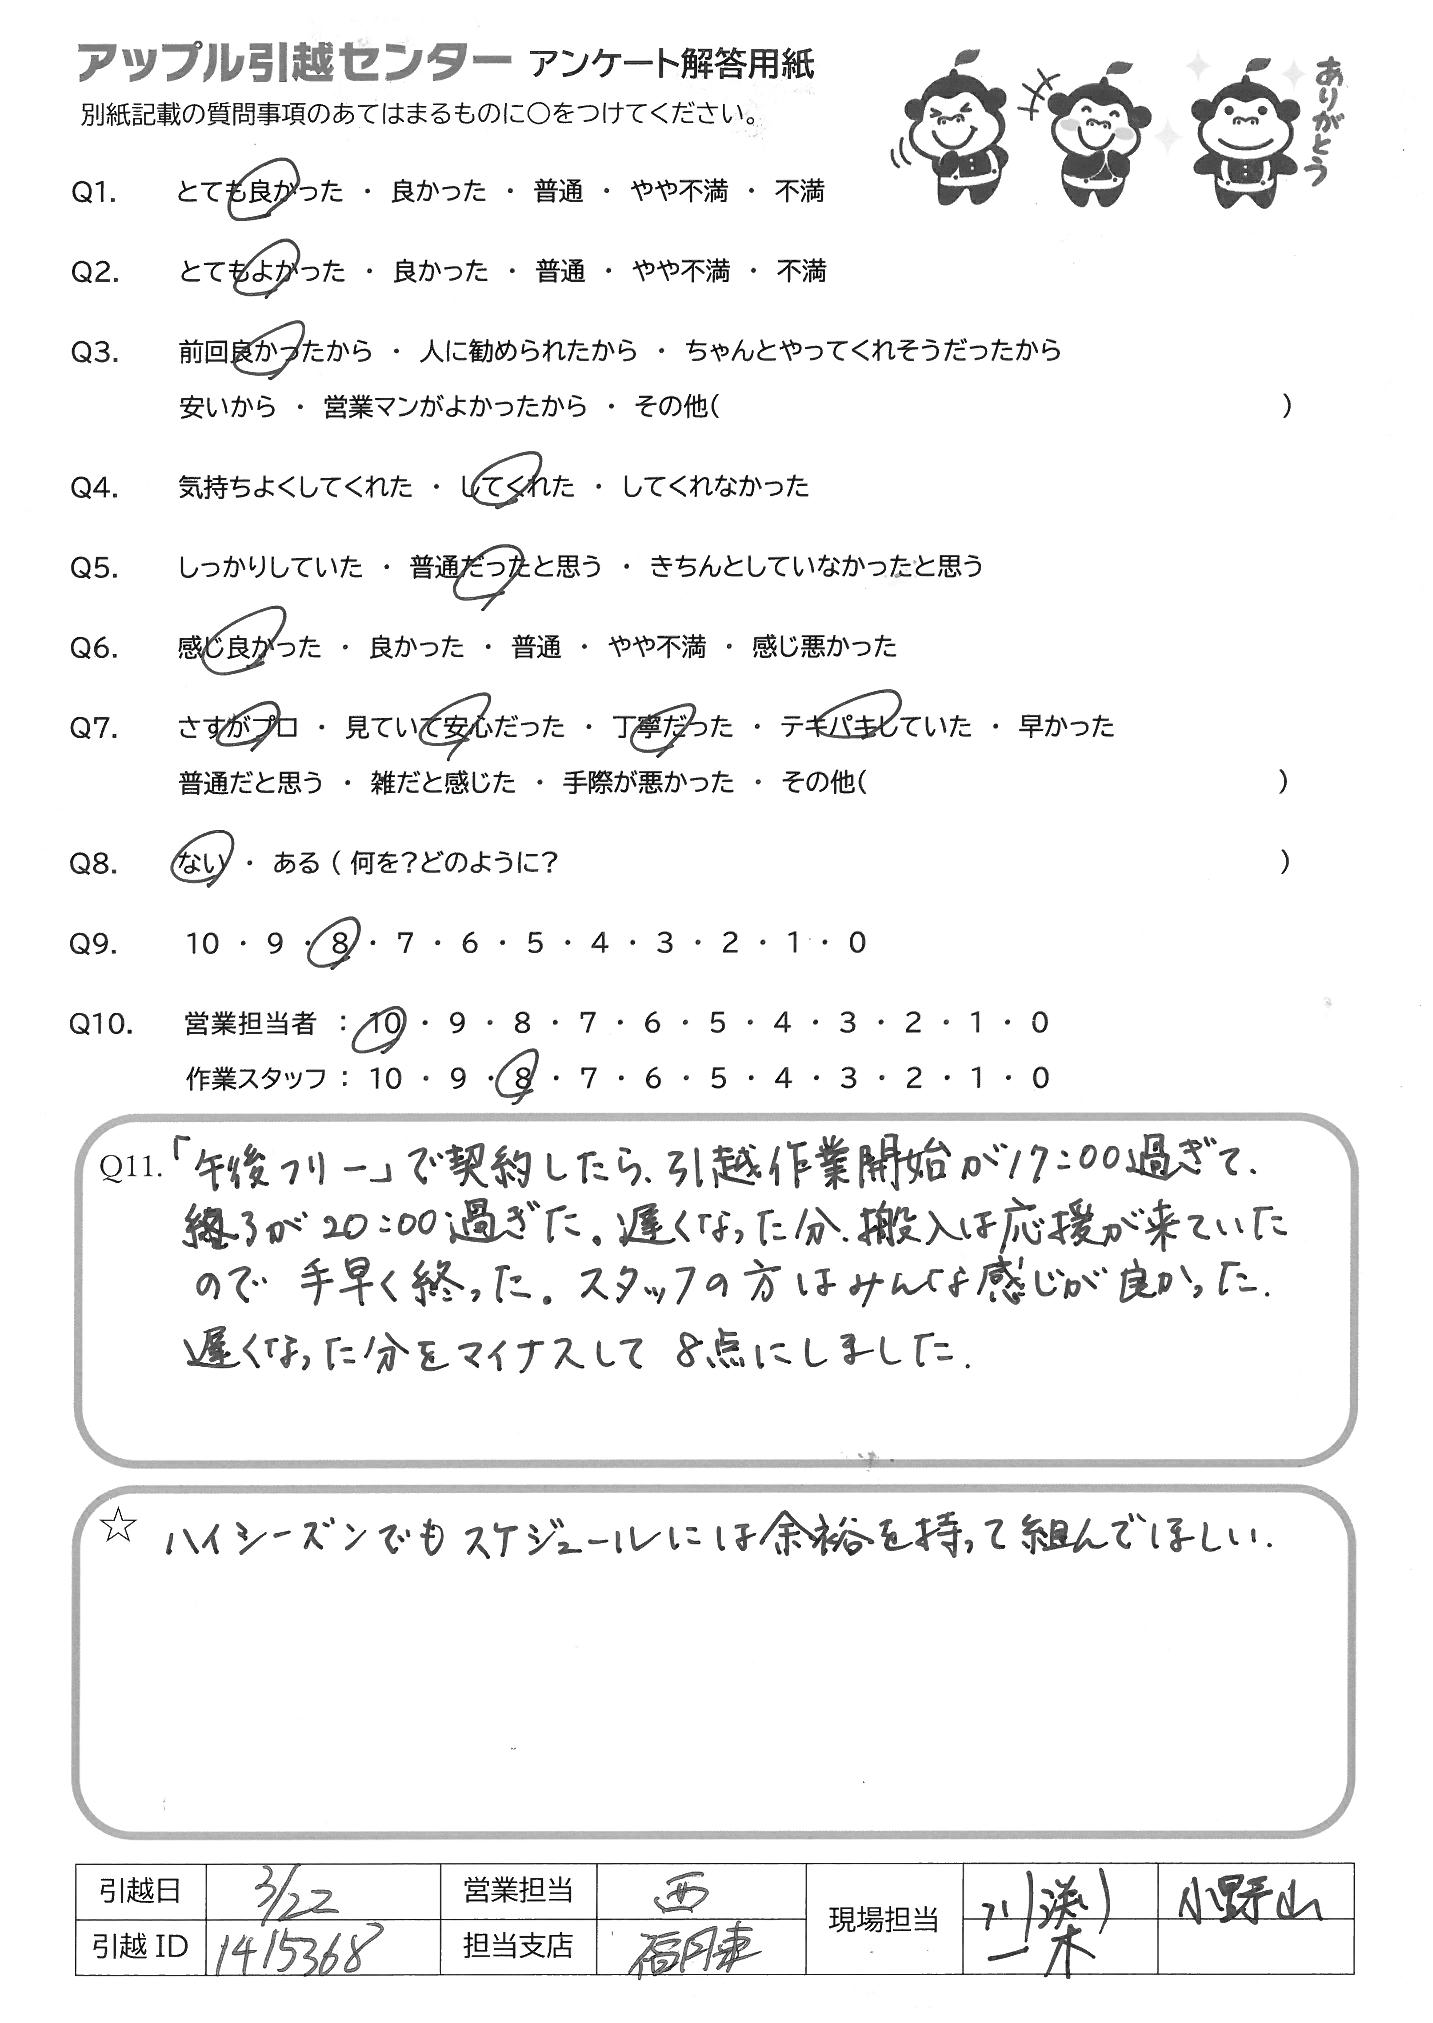 アップル引越センター アンケート解答用紙
別紙記載の質問事項のあてはまるものに○をつけてください。
ありがとう
Q1. とても良かった ・ 良かった ・ 普通 ・ やや不満 ・ 不満
Q2. とてもよかった ・ 良かった ・ 普通 ・ やや不満 ・ 不満
Q3. 前回良かったから ・ 人に勧められたから ・ ちゃんとやってくれそうだったから
安いから ・ 営業マンがよかったから ・ その他( )
Q4. 気持ちよくしてくれた ・ してくれた ・ してくれなかった
Q5. しっかりしていた ・ 普通だったと思う ・ きちんとしていなかったと思う
Q6. 感じ良かった ・ 良かった ・ 普通 ・ やや不満 ・ 感じ悪かった
Q7. さすがプロ ・ 見ていて安心だった ・ 丁寧だった ・ テキパキしていた ・ 早かった
普通だと思う ・ 雑だと感じた ・ 手際が悪かった ・ その他( )
Q8. ない ・ ある ( 何を?どのように? )
Q9. 10 ・ 9 ・ 8 ・ 7 ・ 6 ・ 5 ・ 4 ・ 3 ・ 2 ・ 1 ・ 0
Q10. 営業担当者 : 10 ・ 9 ・ 8 ・ 7 ・ 6 ・ 5 ・ 4 ・ 3 ・ 2 ・ 1 ・ 0
作業スタッフ : 10 ・ 9 ・ 8 ・ 7 ・ 6 ・ 5 ・ 4 ・ 3 ・ 2 ・ 1 ・ 0
Q11. 「午後フリー」で契約したら、引越作業開始が17:00過ぎて、
終るが20:00過ぎた。遅くなった分、搬入は応援が来ていた
ので 手早く終った。スタッフの方はみんな感じが良かった.
遅くなった分をマイナスして 8点にしました.
☆ ハイシーズンでもスケジュールには余裕を持って組んでほしい.
引越日 3/22 営業担当 西 現場担当 小野山
引越ID 1415368 担当支店 一木